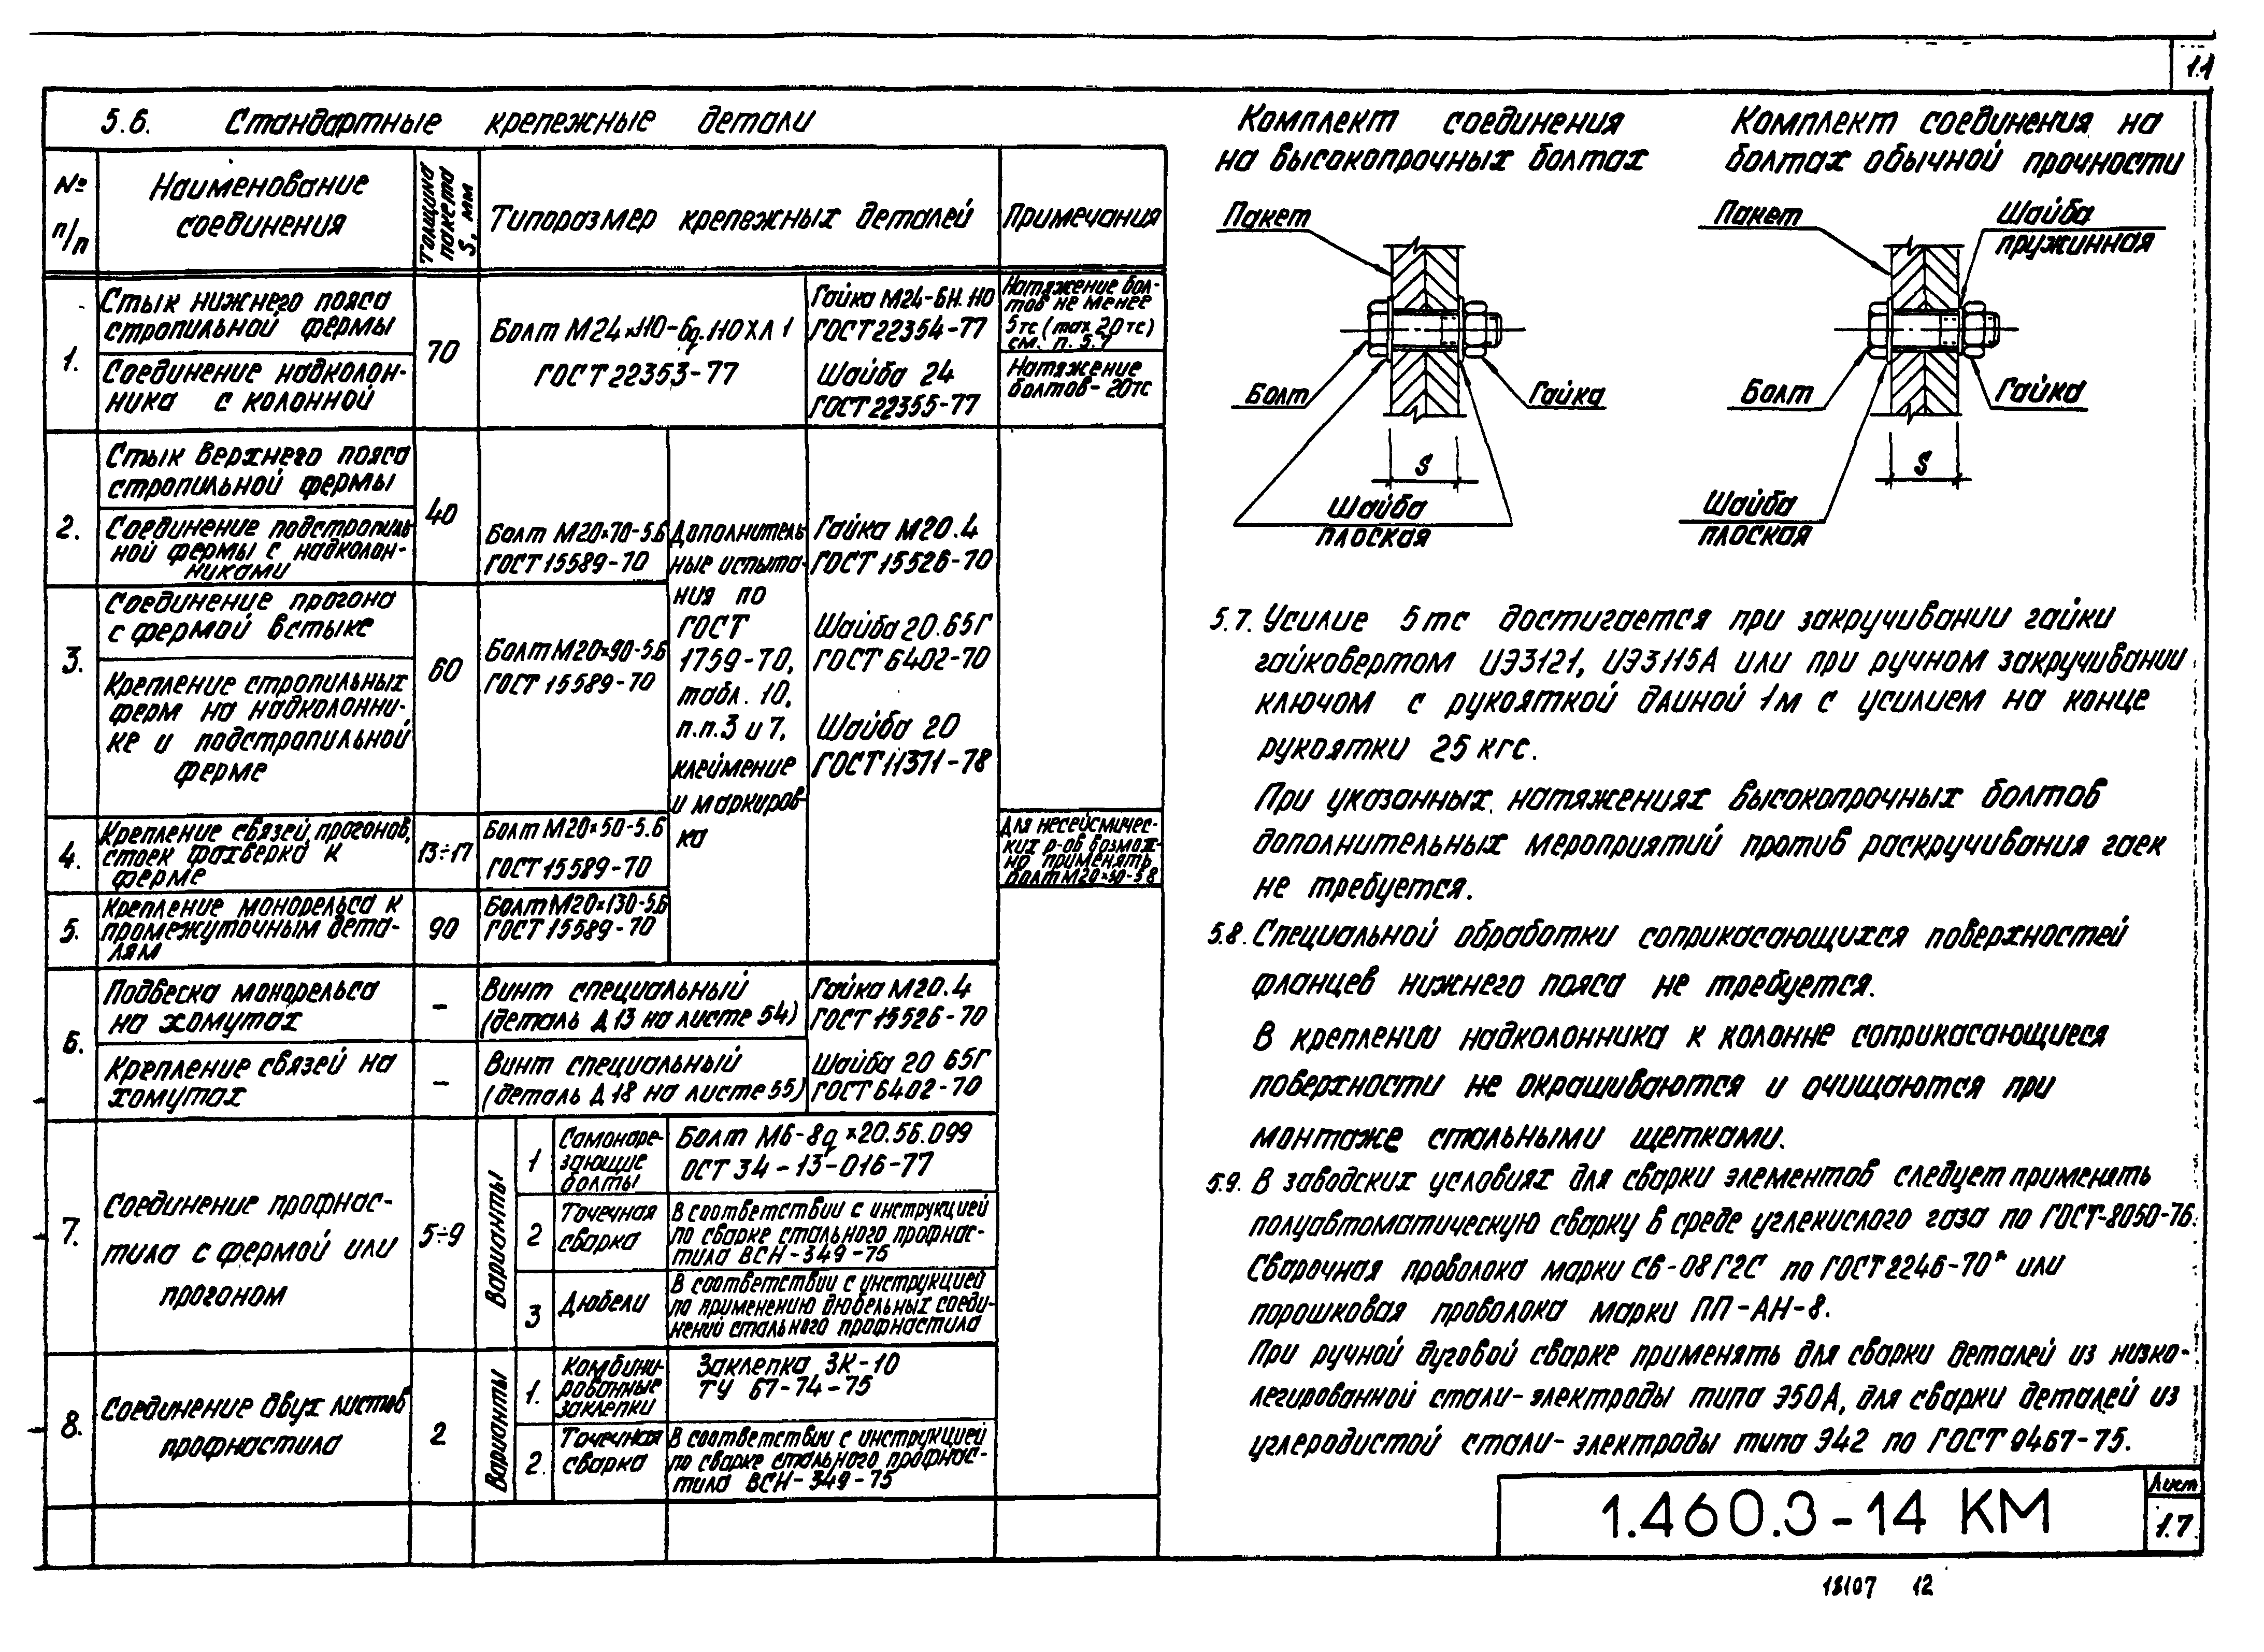 11
5.6. Стандартные крепежные детали
№ п/п
Наименование соединения
Толщина пакета S, мм
Типоразмер крепежных деталей
Примечания
1.
Стык нижнего пояса
стропильной фермы
Соединение надколон-
ника с колонной
70
Болт М24×110-6g.110ХЛ 1
ГОСТ 22353-77
Гайка М24-6Н.110
ГОСТ 22354-77
Шайба 24
ГОСТ 22355-77
Натяжение бол-
тов не менее
5тс (max 20тс)
см. п. 5.7
Натяжение
болтов- 20тс
2.
Стык верхнего пояса
стропильной фермы
Соединение подстропиль
ной фермы с надколон-
никами
40
Болт М20×70-5.6
ГОСТ 15589-70
Дополнитель
ные испыта-
ния по
ГОСТ
1759-70,
табл. 10,
п.п.3 и 7,
клеймение
и маркиров-
ка
Гайка М20.4
ГОСТ 15526-70
Шайба 20.65Г
ГОСТ 6402-70
Шайба 20
ГОСТ 11371-78
3.
Соединение прогона
с фермой встыке
Крепление стропильных
ферм на надколонни-
ке и подстропильной
ферме
60
Болт М20×90-5.6
ГОСТ 15589-70
4.
Крепление связей, прогонов,
стоек фахверка к
ферме
13÷17
Болт М20×50-5.6
ГОСТ 15589-70
Для несейсмичес-
ких р-ов возмож-
но применять
болт М20×50-5.8
5.
Крепление монорельса к
промежуточным дета-
лям
90
Болт М20×130-5.6
ГОСТ 15589-70
6.
Подвеска монорельса
на хомутах
-
Винт специальный
(деталь Д13 на листе 54)
Гайка М20.4
ГОСТ 15526-70
Крепление связей на
хомутах
-
Винт специальный
(деталь Д18 на листе 55)
Шайба 20 65Г
ГОСТ 6402-70
7.
Соединение профнас-
тила с фермой или
прогоном
5÷9
Варианты
1
Самонаре-
зающие
болты
Болт М6-8g×20.56.099
ОСТ 34-13-016-77
2
Точечная
сварка
В соответствии с инструкцией
по сварке стального профнас-
тила ВСН-349-75
3
Дюбели
В соответствии с инструкцией
по применению дюбельных соеди-
нений стального профнастила
8.
Соединение двух листов
профнастила
2
Варианты
1.
Комбини-
рованные
заклепки
Заклепка ЗК-10
ТУ 67-74-75
2.
Точечная
сварка
В соответствии с инструкцией
по сварке стального профнас-
тила ВСН-349-75
Комплект соединения
на высокопрочных болтах
Пакет
Болт
Гайка
S
Шайба
плоская
Комплект соединения на
болтах обычной прочности
Пакет
Шайба
пружинная
Болт
Гайка
S
Шайба
плоская
5.7. Усилие 5тс достигается при закручивании гайки
гайковертом ИЭ3121, ИЭ3115А или при ручном закручивании
ключом с рукояткой длиной 1м с усилием на конце
рукоятки 25 кгс.
При указанных натяжениях высокопрочных болтов
дополнительных мероприятий против раскручивания гаек
не требуется.
5.8. Специальной обработки соприкасающихся поверхностей
фланцев нижнего пояса не требуется.
В креплении надколонника к колонне соприкасающиеся
поверхности не окрашиваются и очищаются при
монтаже стальными щетками.
5.9. В заводских условиях для сварки элементов следует применять
полуавтоматическую сварку в среде углекислого газа по ГОСТ-8050-76.
Сварочная проволока марки Св-08Г2С по ГОСТ 2246-70* или
порошковая проволока марки ПП-АН-8.
При ручной дуговой сварке применять для сварки деталей из низко-
легированной стали-электроды типа Э50А, для сварки деталей из
углеродистой стали-электроды типа Э42 по ГОСТ 9467-75.
1.460.3-14 КМ
Лист
1.7
18107 12